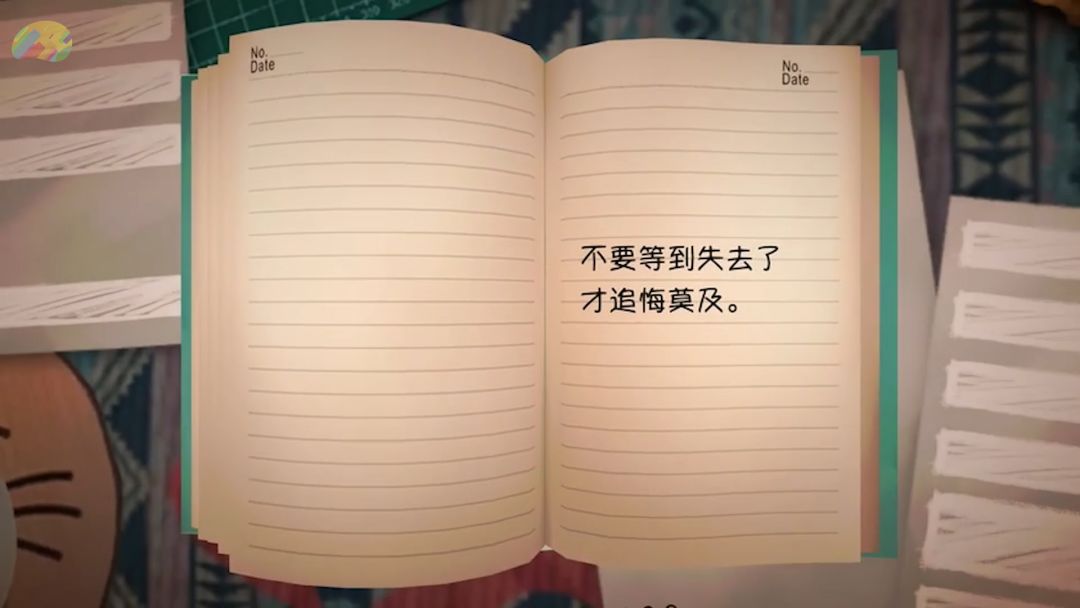 No.
Date
No.
Date
不要等到失去了
才追悔莫及。